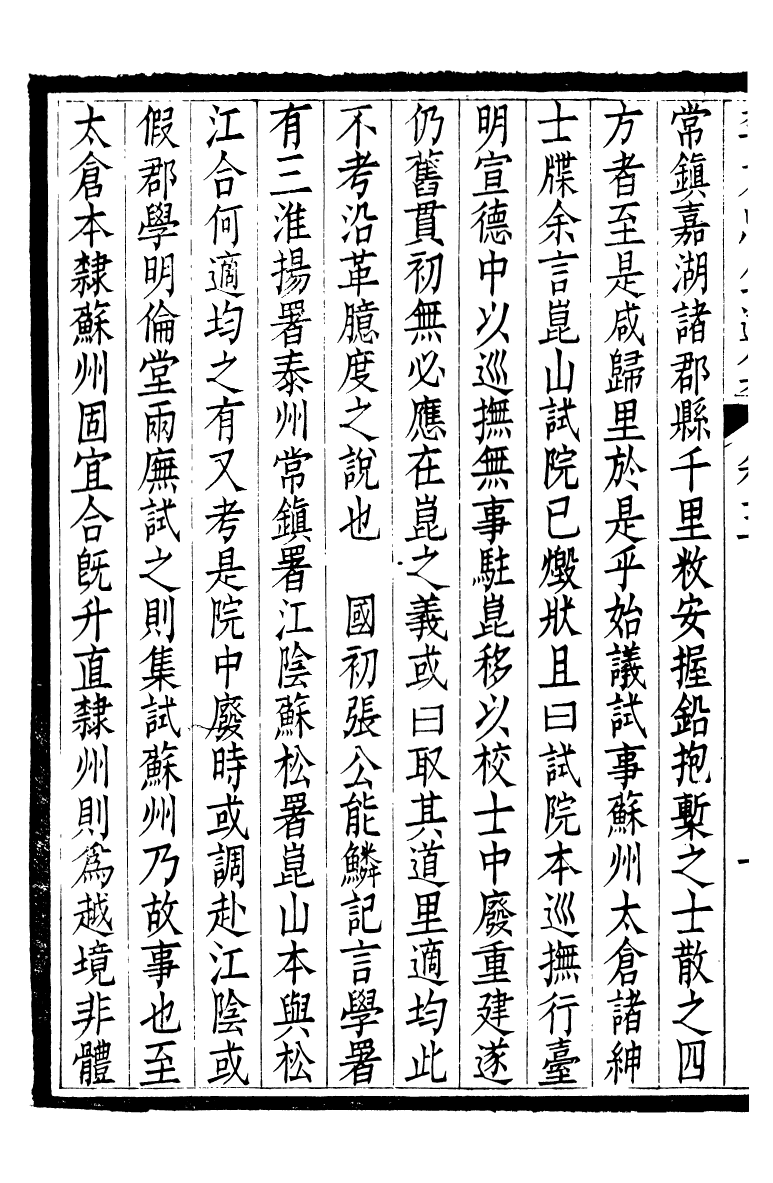 常鎮嘉湖諸郡縣千里敉安握鉛抱槧之士散之四
方者至是咸歸里於是乎始議試事蘇州太倉諸紳
士牒余言崑山試院已燬狀且曰試院本巡撫行臺
明宣德中以巡撫無事駐崑移以校士中廢重建遂
仍舊貫初無必應在崑之義或曰取其道里適均此
不考沿革臆度之說也　國初張公能鱗記言學署
有三淮揚署泰州常鎮署江陰蘇松署崑山本與松
江合何適均之有又考是院中廢時或調赴江陰或
假郡學明倫堂兩廡試之則集試蘇州乃故事也至
太倉本隸蘇州固宜合旣升直隸州則爲越境非體